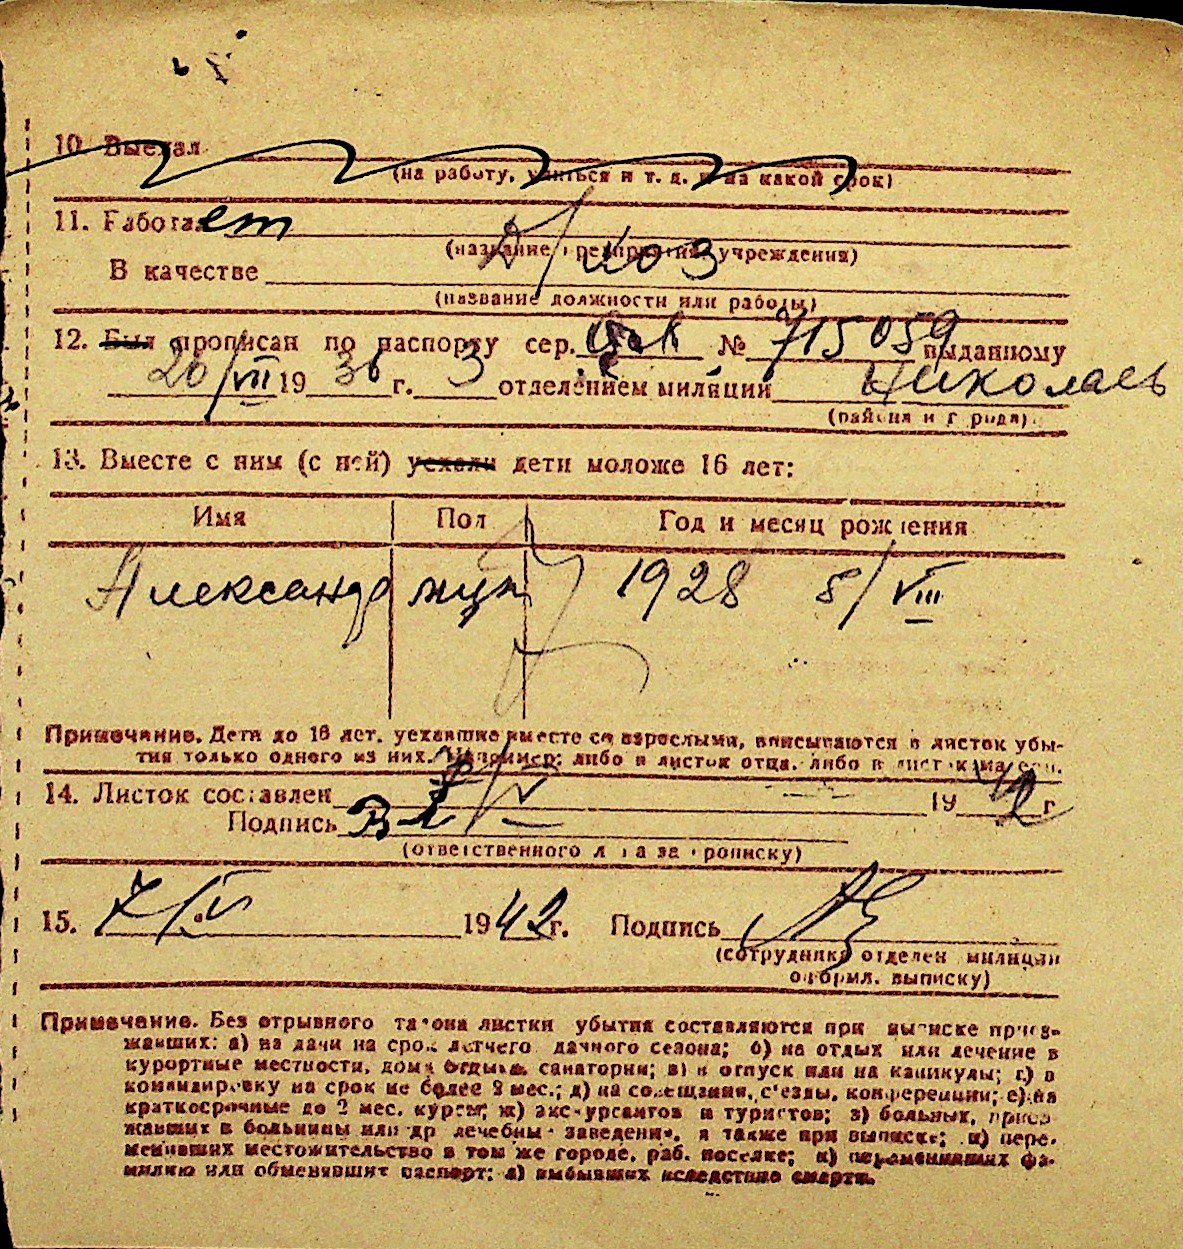 10. Выехал
(на работу, учиться и т. д. и на какой срок)
11. Работает
(название предприятия, учреждения)
Д/хоз
В качестве
(название должности или работы)
12. Был прописан по паспорту сер. № 715059 выданному
20/VII 1936 г. 3 отделением милиции Николаев
(района и города)
13. Вместе с ним (с ней) уехали дети моложе 16 лет:
Имя Пол Год и месяц рождения
Александр муж 1928 8/VIII
Примечание. Дети до 16 лет, уехавшие вместе со взрослыми, вписываются в листок убы-
тия только одного из них. Например: либо в листок отца, либо в листок матери.
14. Листок составлен 7/V 1942 г
Подпись
(ответственного лица за прописку)
15. 7/V 1942 г. Подпись
(сотрудника отделен милиции
оформл. выписку)
Примечание. Без отрывного талона листки убытия составляются при выписке приез-
жавших: а) на дачи на срок летнего дачного сезона; б) на отдых или лечение в
курортные местности, дома отдыха, санатории; в) в отпуск или на каникулы; г) в
командировку на срок не более 2 мес.; д) на совещания, с'езды, конференции; е) на
краткосрочные до 2 мес. курсы; ж) экскурсантов и туристов; з) больных, приез-
жавших в больницы или др лечебны заведения, а также при выписке; и) пере-
менивших местожительство в том же городе, раб. поселке; к) переменивших фа-
милию или обменявших паспорт; л) выбывших вследствие смерти.